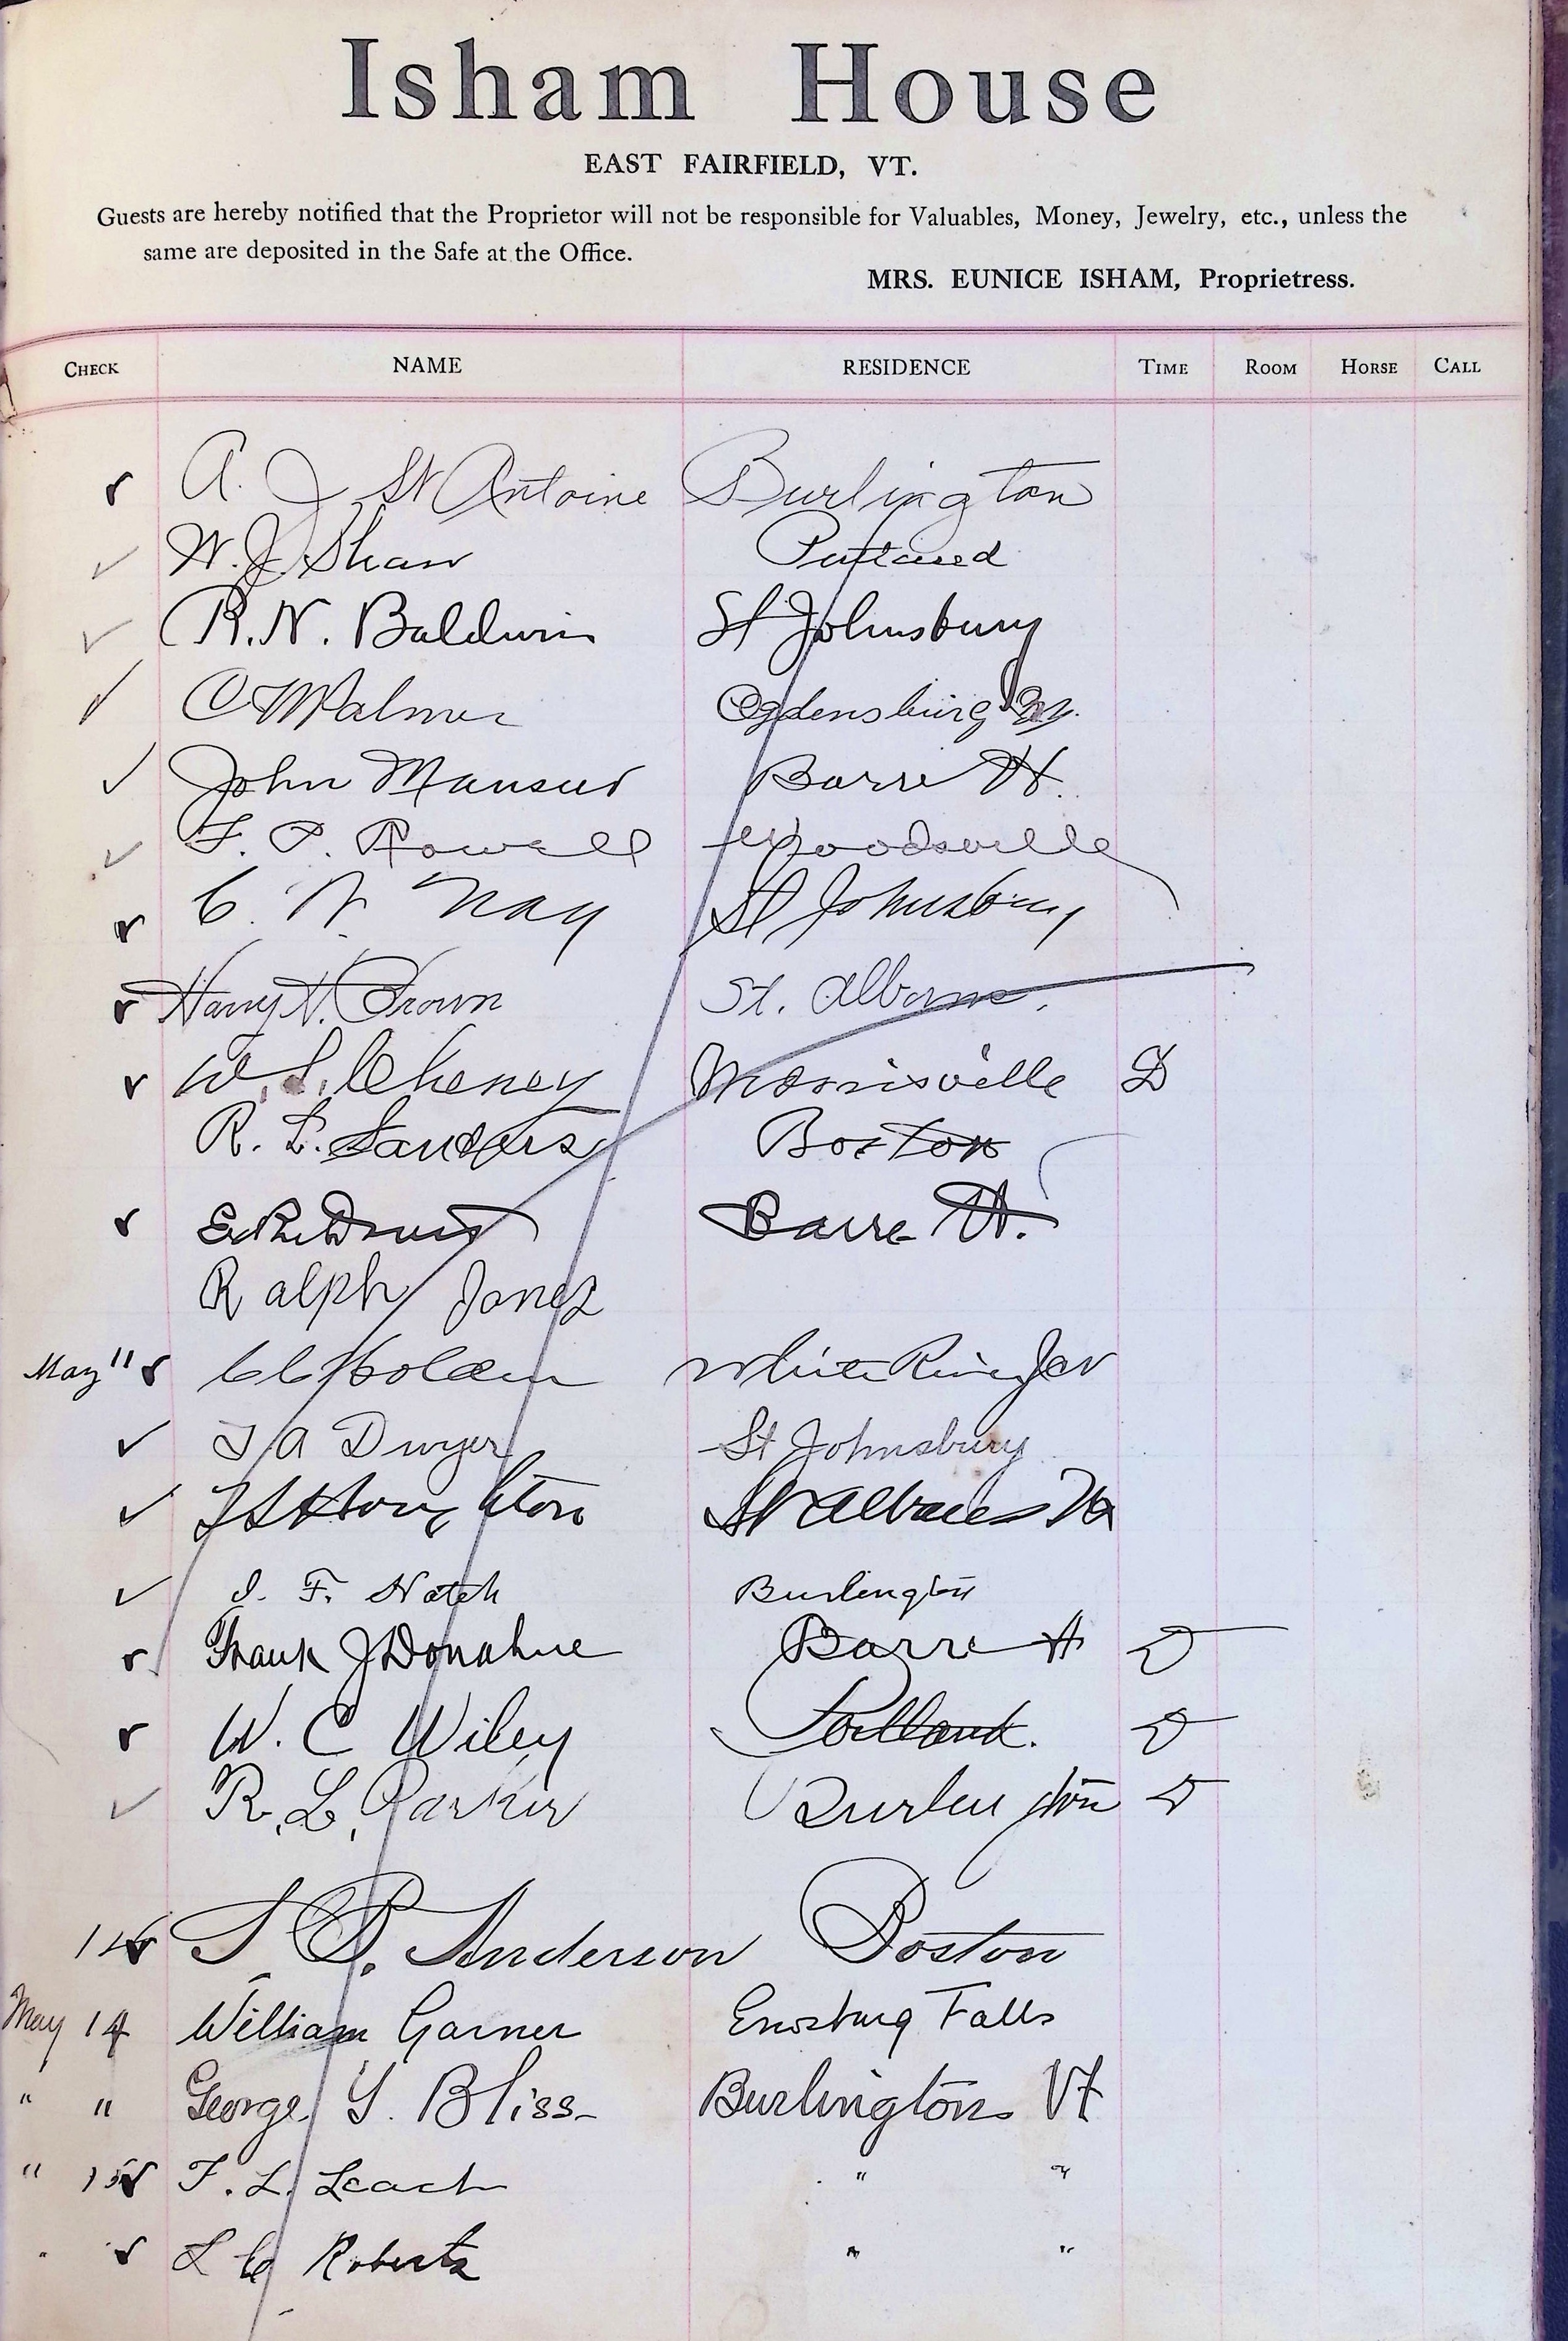 Isham House
EAST FAIRFIELD, VT.
Guests are hereby notified that the Proprietor will not be responsible for Valuables, Money, Jewelry, etc., unless the
same are deposited in the Safe at the Office.
MRS. EUNICE ISHAM, Proprietress.
CHECK NAME RESIDENCE TIME ROOM HORSE CALL
A. J St Antoine Burlington
W. J. Shaw
R. N. Baldwin St Johnsbury
Palmer Ogdensburg N.Y.
John Mansur Barre Vt.
F. P. Rowell Woodsville
C. N. Nay St Johnsbury
Harry N. Brown St. Albans.
W. S. Cheney Morrisville D
R. L. Sanders Boston
Davis Barre Vt.
Ralph Jones
May 11 C C Holden White River Jct
J A Dwyer St Johnsbury
Houghton St Albans Vt
F. Hatch Burlington
Frank J Donahue Barre Vt D
W. C Wiley Portland. D
R. L. Parker Burlington D
S. P. Anderson Boston
May 14 William Garner Enosburg Falls
" " George Y. Bliss Burlington Vt
" 15 F. L. Leach " "
" L C Roberts " "